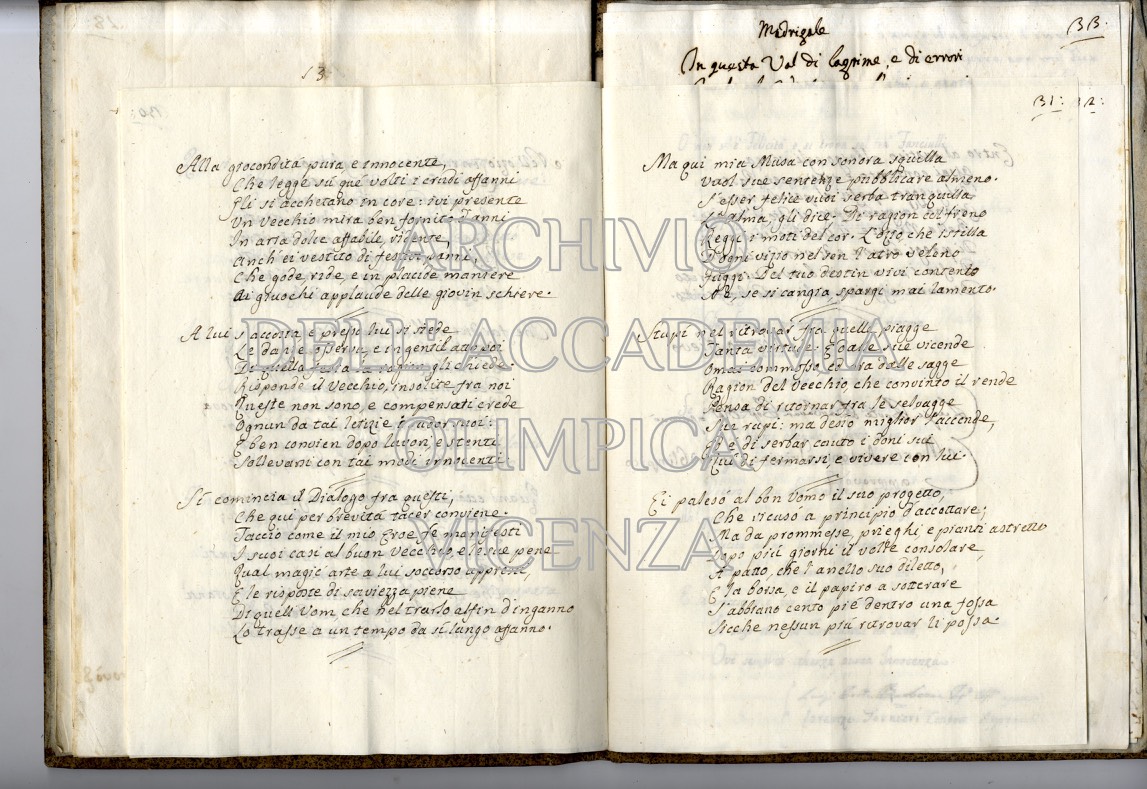 13
Alla giocondità pura e innocente,
Che legge sù què volti i crudi affanni
Gli si acchetano in core: ivi presente
Un vecchio mira ben fornito d'anni
In aria dolce affabile, ridente,
Anch'ei vestito di festivi panni,
Che gode, ride, e in placide maniere
Ai giuochi applaude delle giovin schiere.
A lui s'accosta e presso lui si siede
Le danze osserva, e in gentil atto poi
Di quella festa la ragion gli chiede.
Risponde il Vecchio, insolite fra noi
Queste non sono, e compensati crede
Ognun da tai letizie i sudor suoi:
E ben convien dopo lavori, e stenti
Sollevarsi con tai modi innocenti.
Si comincia il Dialogo fra questi,
Che qui per brevità tacer conviene.
Taccio come il mio Eroe fe manifesti
I suoi casi al buon Vecchio, e le sue pene
Qual magic'arte a lui soccorso appresti,
E le risposte di saviezza piene
Di quell'Uom, che nel trarlo alfin d'inganno
Lo trasse a un tempo da sì lungo affanno.
Madrigale
33.
In questa Val di lagrime, e di errori
31: 12:
Ma qui mia Musa con sonora squilla
Vuol sue sentenze pubblicare almeno.
S'esser felice vuoi serba tranquilla
L'alma, gli dice. Di ragion col freno
Reggi i moti del cor. L'ozio che istilla
D'ogni vizio nel sen l'atro veleno
Fuggi. Del tuo destin vivi contento
Nè, se si cangia, spargi mai lamento.
Stupì nel ritrovar fra quelle piagge
Tanta virtude: E dalle sue vicende
Omai commosso, ed ora dalle sagge
Ragion del Vecchio che convinto il rende
Pensa di ritornar fra le selvagge
Sue rupi: ma desio miglior l'accende,
Ed è di serbar cauto i doni sui
Qui di fermarsi, e vivere con lui.
Ei palesò al bon Uomo il suo progetto,
Che ricusò a principio d'accettare;
Ma da prommesse, prieghi, e pianti astretto
Dopo più giorni il volle consolare,
A patto, che l'anello suo diletto,
E la borsa, e il papiro a sotterare
S'abbiano cento piè dentro una fossa
Sicche nessun più ritrovar li possa.
ARCHIVIO
DELL'ACCADEMIA
OLIMPICA
VICENZA